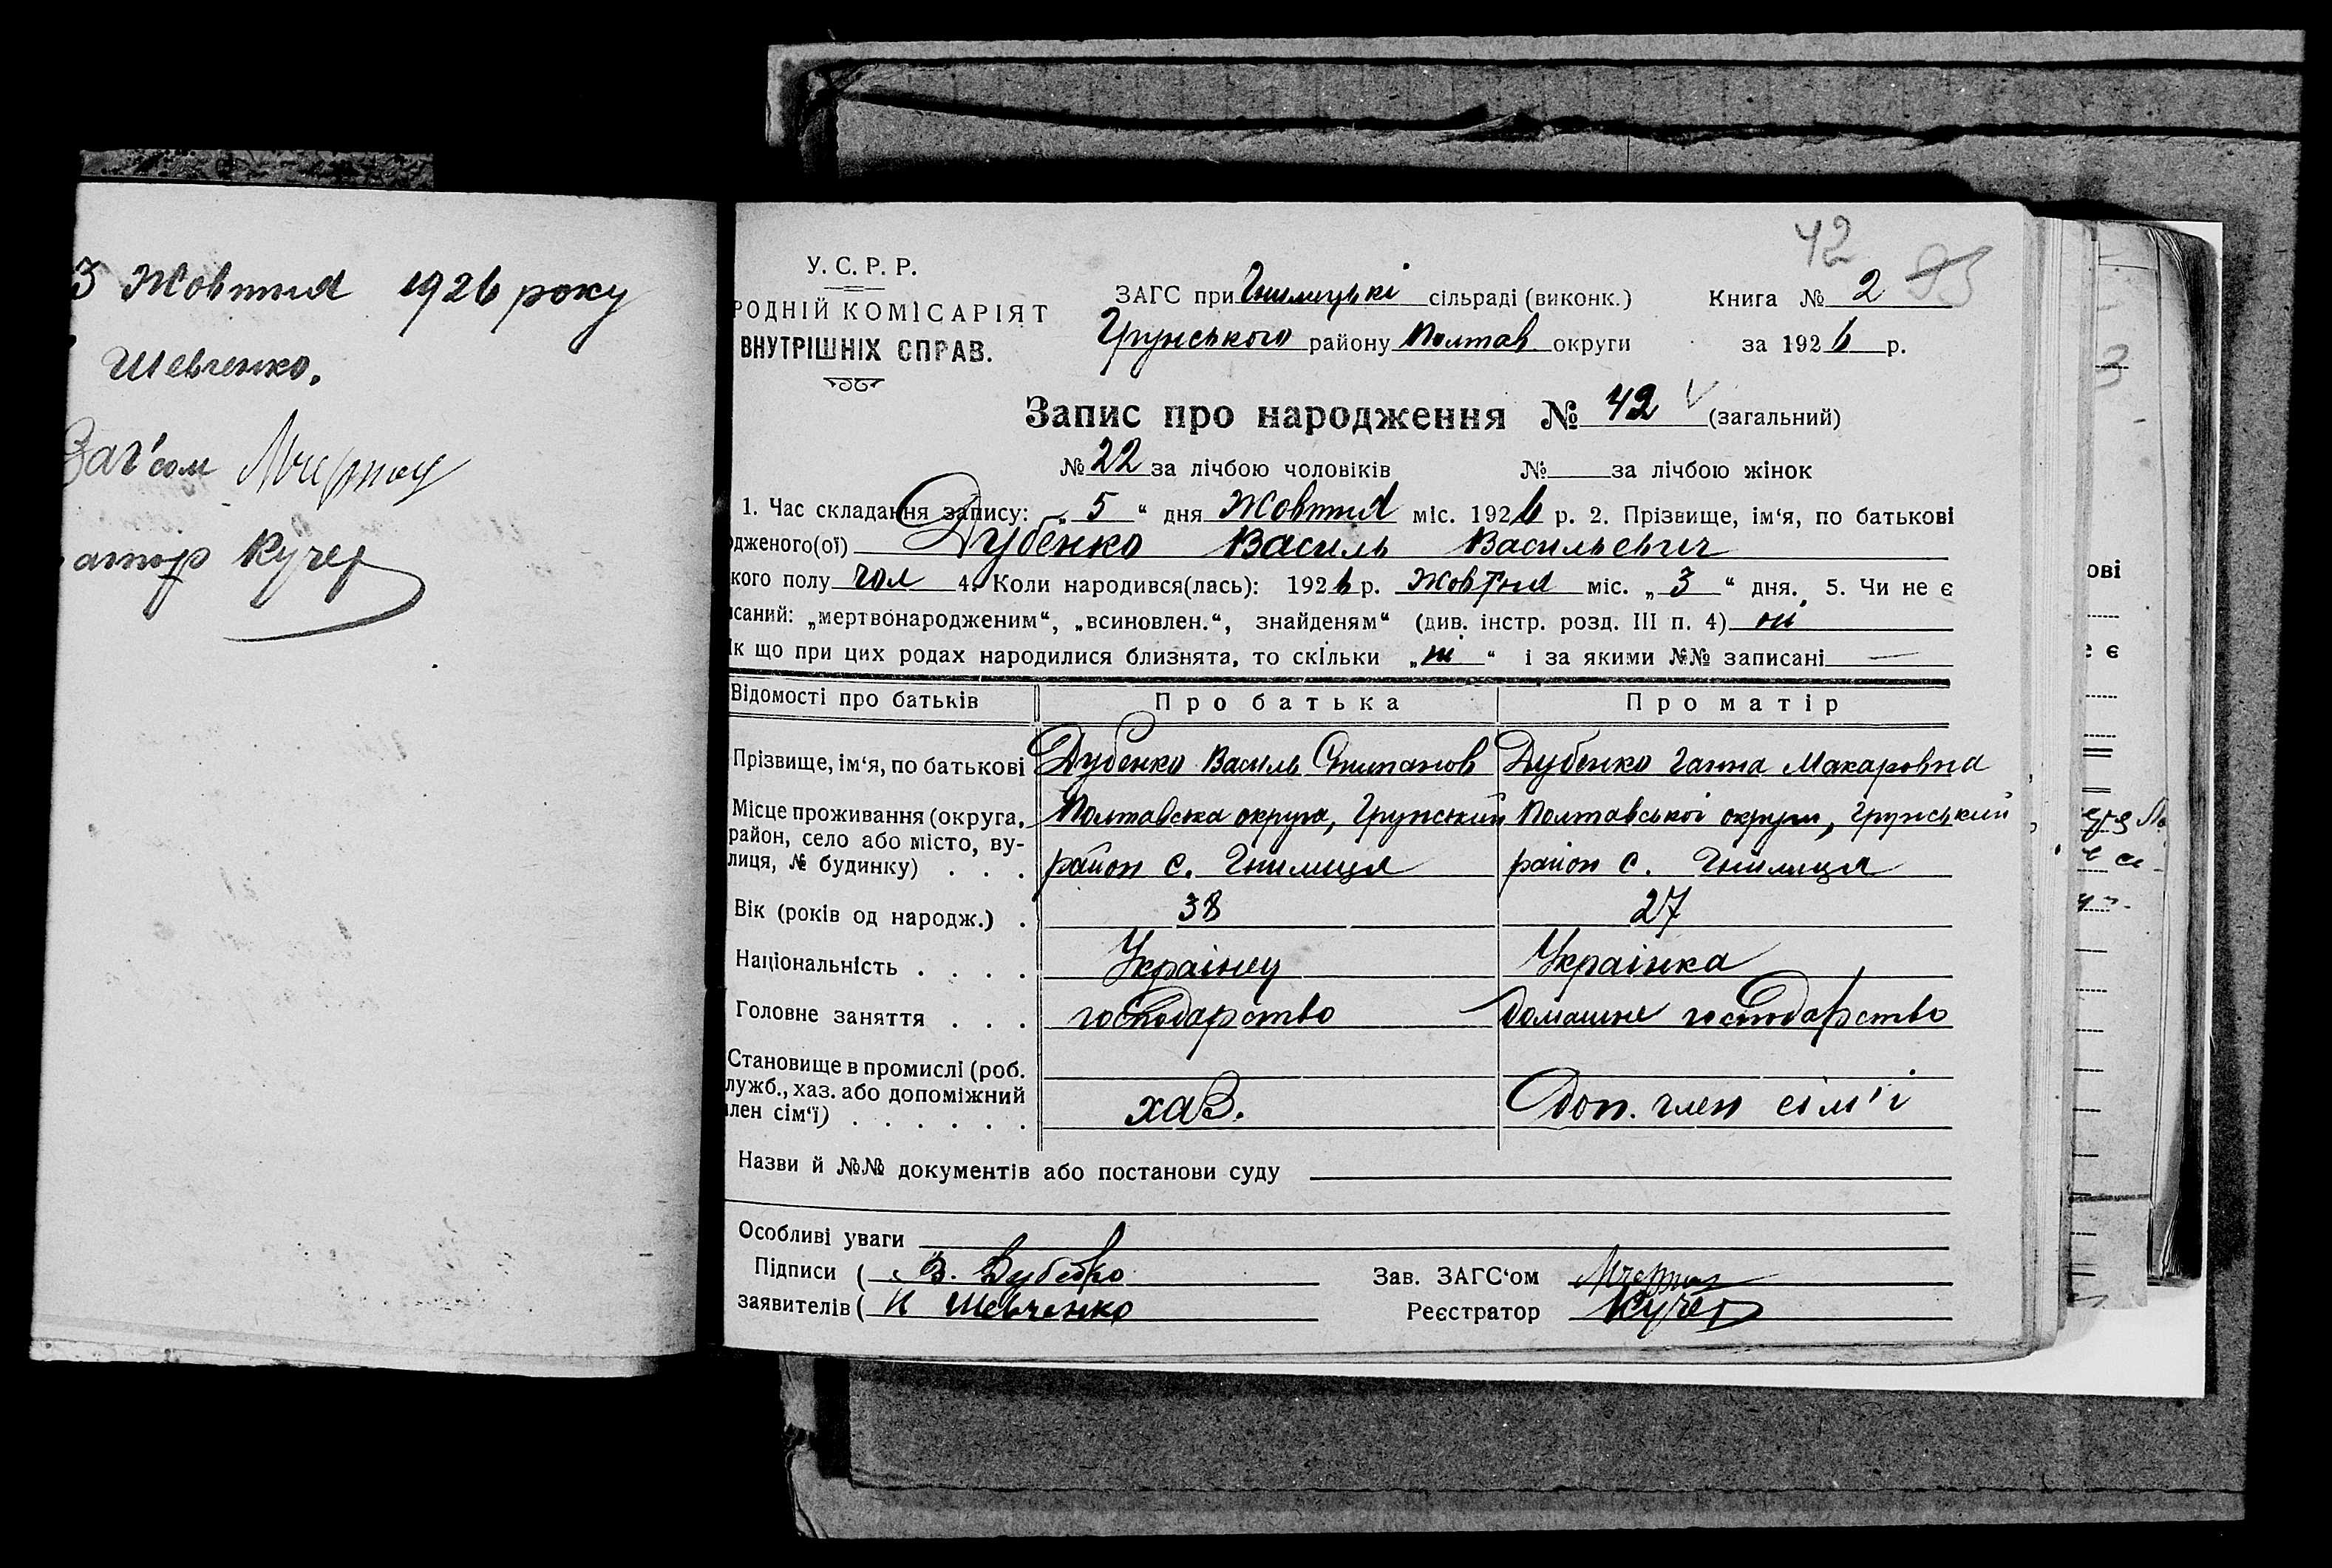 3 Жовтня 1926 року
Шевченко.
Заг'сом
атор Кучер
42
У. С. Р. Р.
РОДНІЙ КОМІСАРІЯТ
ВНУТРІШНІХ СПРАВ.
ЗАГС при Гнилицькі сільраді (виконк.)
Грунського району Полтав. округи
Книга № 2
за 1926 р.
Запис про народження № 42 (загальний)
№ 22 за лічбою чоловіків № за лічбою жінок
1. Час складання запису: „ 5 “ дня Жовтня міс. 1926 р. 2. Прізвище, ім‘я, по батькові
дженого(ої) Дубенко Василь Васильевич
кого полу чол 4. Коли народився(лась): 1926 р. Жовтня міс. „ 3 “ дня. 5. Чи не є
саний: „мертвонародженим“, „всиновлен.“, знайденям“ (див. інстр. розд. III п. 4) ні
к що при цих родах народилися близнята, то скільки „ ні “ і за якими №№ записані —
Відомості про батьків Про батька Про матір
Прізвище, ім‘я, по батькові Дубенко Василь Степанов Дубенко Ганна Макаровна
Місце проживання (округа, Полтавська округа, Грунський Полтавської округи, Грунський
район, село або місто, ву-
лиця, № будинку) . . . район с. Гнилиця район с. Гнилиця
Вік (років од народж.) . 38 27
Національність . . . . Украінец Украінка
Головне заняття . . . господарство домашнє господарство
Становище в промислі (роб.
лужб., хаз. або допоміжний хаз. Доп. член сім'і
лен сім‘ї) . . . . . .
Назви й №№ документів або постанови суду
Особливі уваги
Підписи ( В. Дубенко Зав. ЗАГС‘ом
заявителів ( И Шевченко Реєстратор Кучер
ові
є